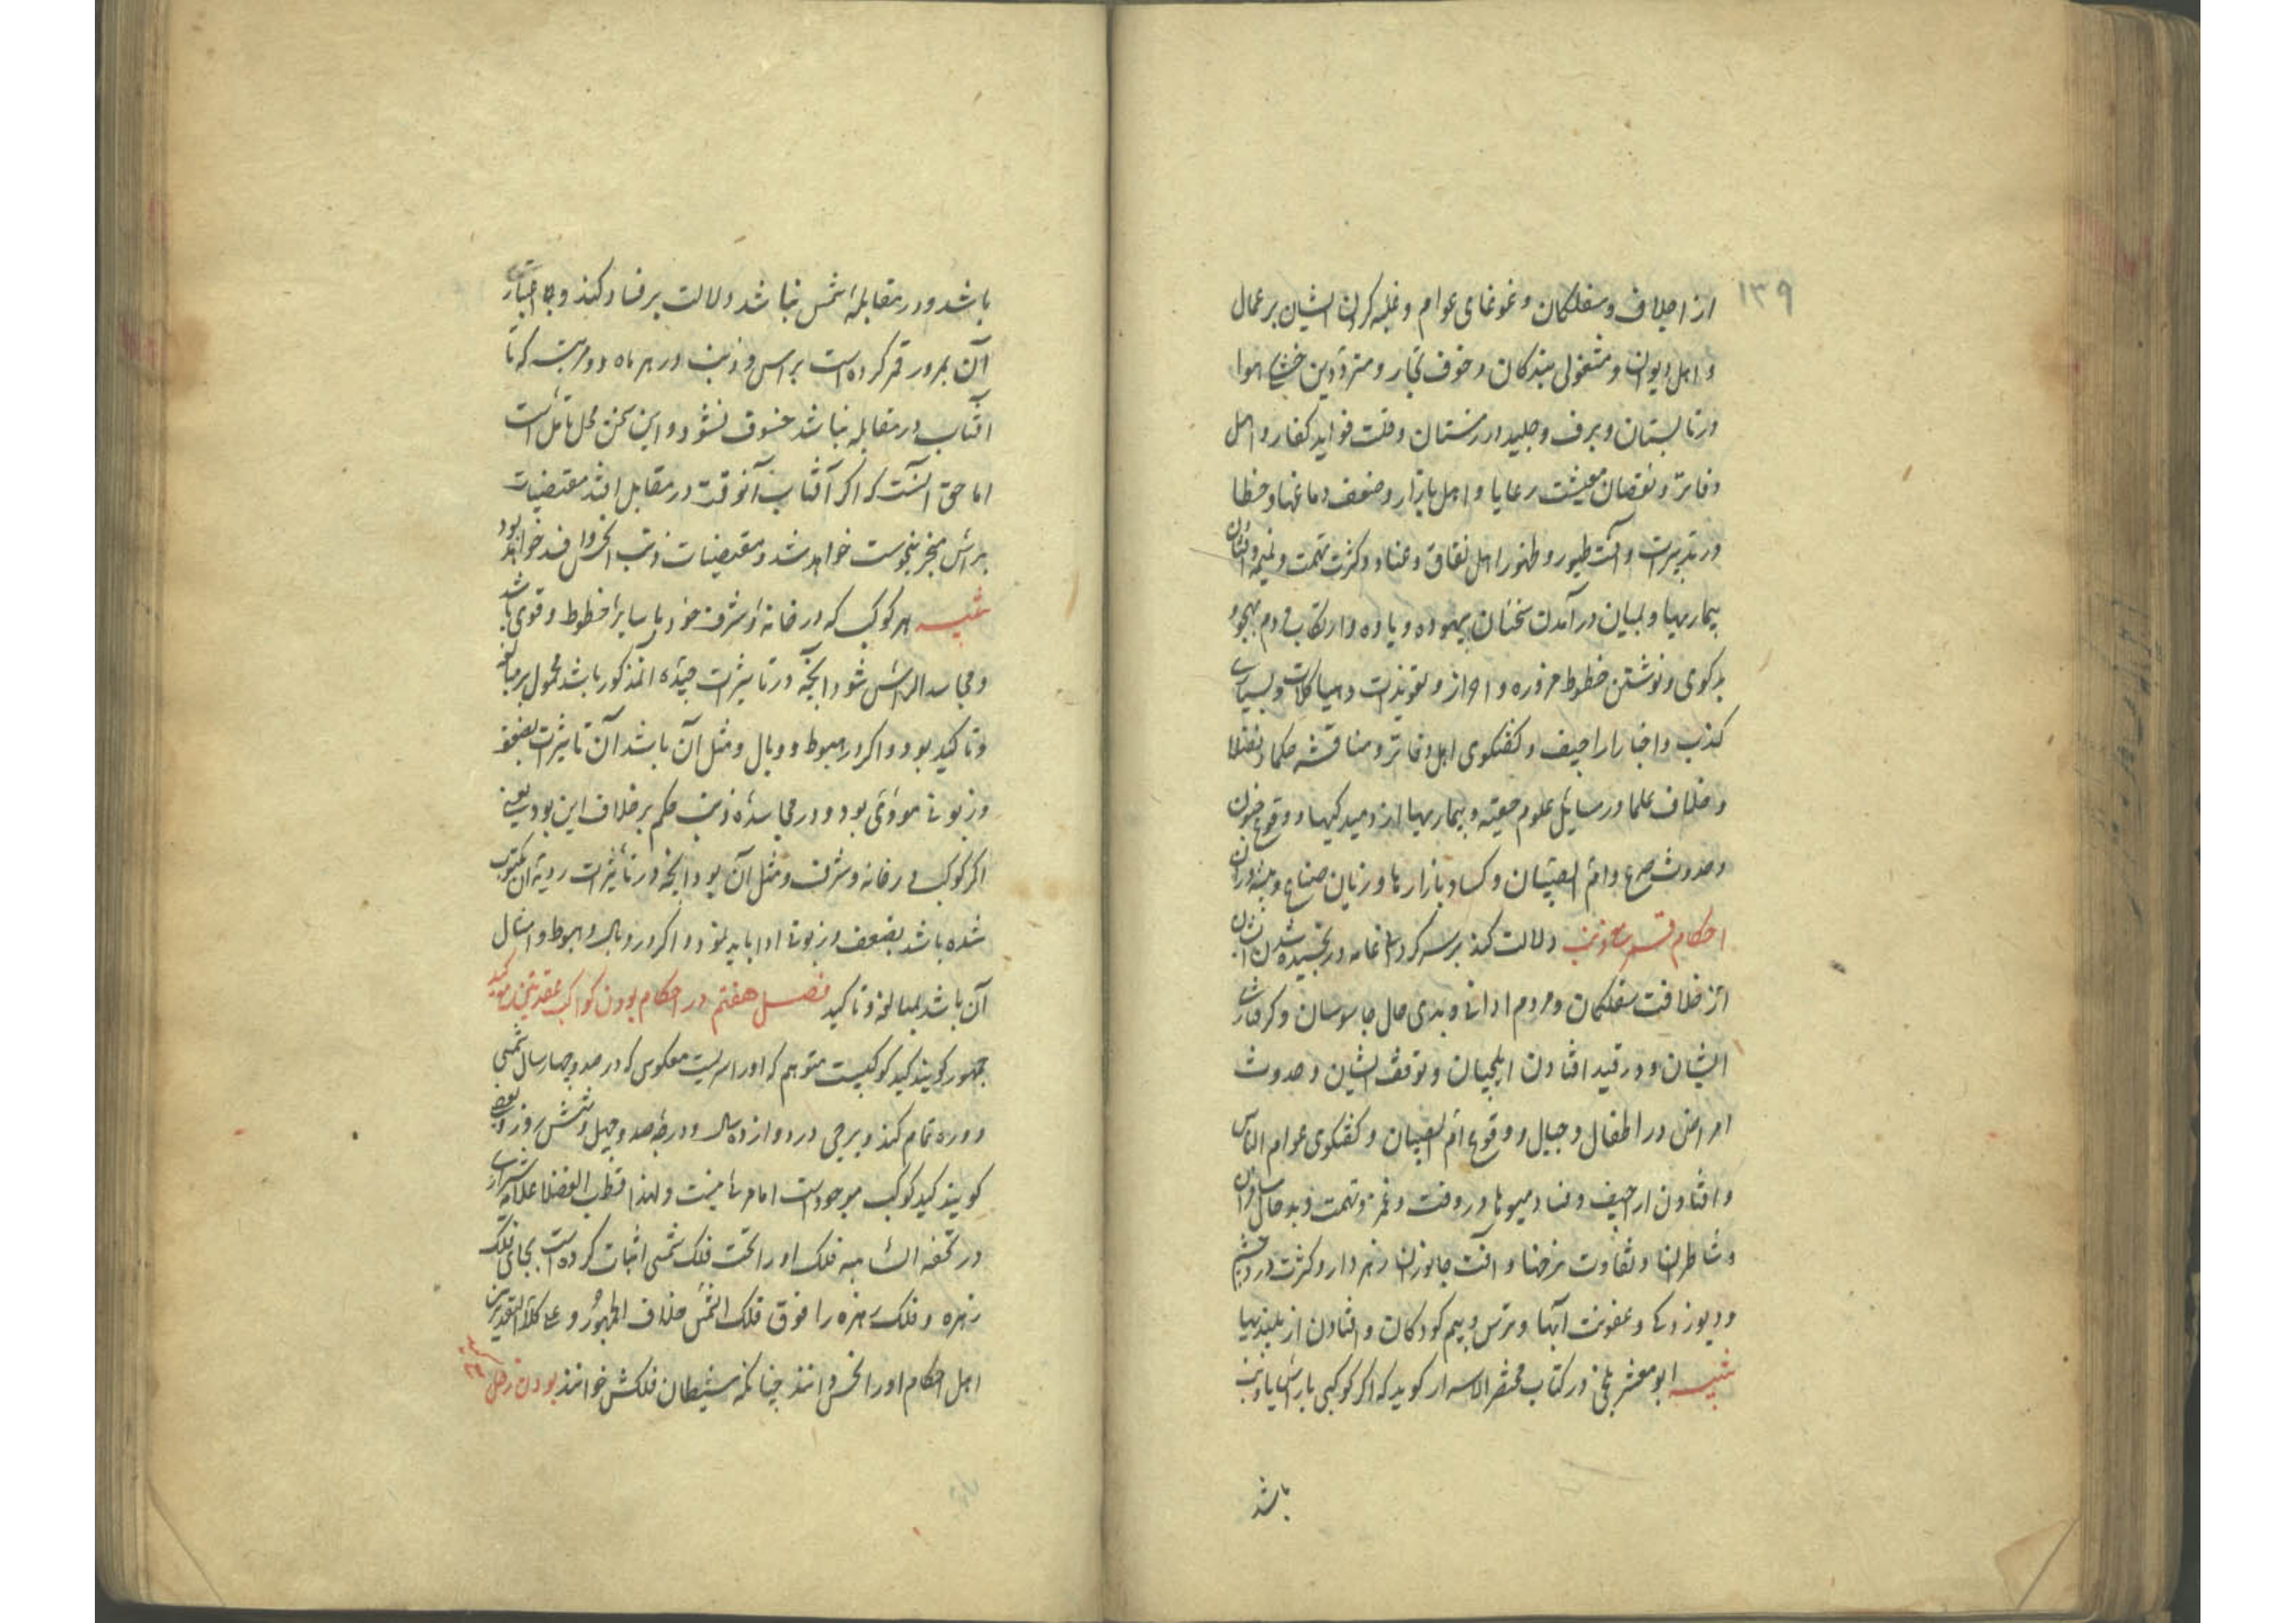 ۱۳۹
از اجلاف و سفلکان و غوغای عوام و غلبه کردن ایشان بر عمال
و اهل دیوان و مشغولی بندکان و خوف تجار و مترددین خشکی هوا
در تابستان و برف و جلید در زمستان و قلت فواید کفار و اهل
دفاتر و نقصان معیشت رعایا و اهل بازار و ضعف دماغها و خطا
در تدبیرات و آفت طیور و ظهور اهل نفاق و عناد و کثرت تهمت و نمیمه
بیماریها و بمیان در آمدن سخنان بیهوده و یاوه و ارتکاب مردم بهجو و
بدکوی و نوشتن خطوط مزوره و احراز و تعویذات و هیاکلات و بسیاری
کذب و اخبار اراجیف و کفتکوی اهل دفاتر و مناقشه حکما و فضلا
و خلاف علما در مسایل علوم حقیقه و بیماریها از دمیدکیها و وقوع جنون
و حدوث صرع و ام الصبیان و کساد بازارها و زیان صناع و پیشه وران
احکام قمر با ذنب دلالت کند بر سرکردانی عامه و رنجیده شدن ایشان
از خلافت سفلکان و مردم ادانی و بدی حال جاسوسان و کرفتاری
ایشان و در قید افتادن ایلچیان و توقف ایشان و حدوث
امراض در اطفال و حبالی و وقوع ام الصبیان و کفتکوی عوام الناس
و افتادن اراجیف و فساد میوها و روفت و غمز و تهمت و بد حالی مسافران
و شاطران و تفاوت نرخها و آفت جانوران زهردار و کثرت درد چشم
و دیوزدکی و عفونت آبها و ترس و بیم کودکان و افتادن از بلندیها
تنبیه ابو معشر بلخی در کتاب مختصر الاسرار کوید که اکر کوکبی با راس یا ذنب
باشد
باشد و در مقابله شمس نباشد دلالت بر فساد کند و اعتبار
آن بمرور قمر کرده است براس و ذنب در هر ماه دو مرتبه که تا
افتاب در مقابله نباشد خسوف نشود و این سخن محل تامل است
اما حق آنست که اکر آفتاب آنوقت در مقابل افتد مقتضیات
براس منجر بنحوست خواهد شد و مقتضیات ذنب انحس و افسد خواهد بود
تنبیه هر کوکب که در خانه و شرف خود یا سایر حظوظ و قوی باشد
و مجاسد الراس شود انچه در تاثیرات جیده المذکور باشد محمول بر مبالغه
و تاکید بود و اکر در هبوط و وبال و مثل آن باشد آن تاثیرات بضعف
و زبونی مودی بود و در مجاسده ذنب حکم بر خلاف این بود یعنی
اکر کوکب در خانه و شرف و مثل آن بود انچه در تاثیرات ردیه آن مکتوب
شده باشد بضعف و زبونی ادا باید نمود و اکر در وبال و هبوط و امثال
آن باشد بمبالغه و تاکید فصل هفتم در احکام بودن کواکب عقدتین کید
جمهور کویند کید کوکبیست متوهم که او را سریست معکوس که در صد و چهار سال شمسی
دوره تمام کند و برجی در دوازده سال و درجه صد و چهل و شش روز و بعضی
کویند کید کوکب موجود است اما مرئی نیست و لهذا قطب الفضلا علامه شیرازی
در تحفه الشاهیه فلک او را تحت فلک شمس اثبات کرده است بجای فلک
زهره و فلک زهره را فوق فلک الشمس خلاف الجمهور و علی کلا التقدیرین
اهل احکام او را نحس دانند چنانکه شیطان فلکش خوانند بودن زحل